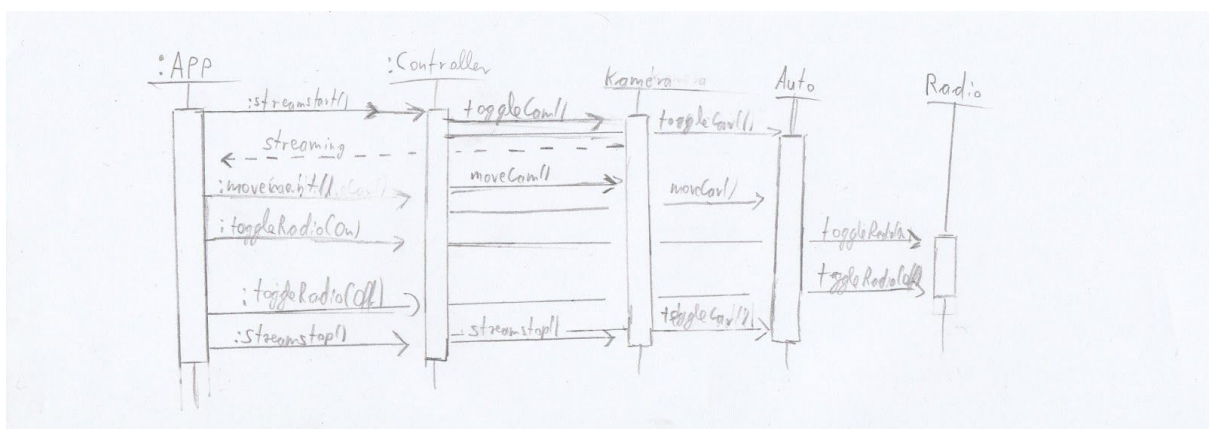 :APP
:Controller
Kamera
Auto
Radio
:streamstart()
toggleCam()
toggleCar()
streaming
:movement()
moveCam()
moveCar()
:toggleRadio(On)
toggleRadio
:toggleRadio(Off)
toggleRadio(off)
:Streamstop()
:streamstop()
toggleCar()